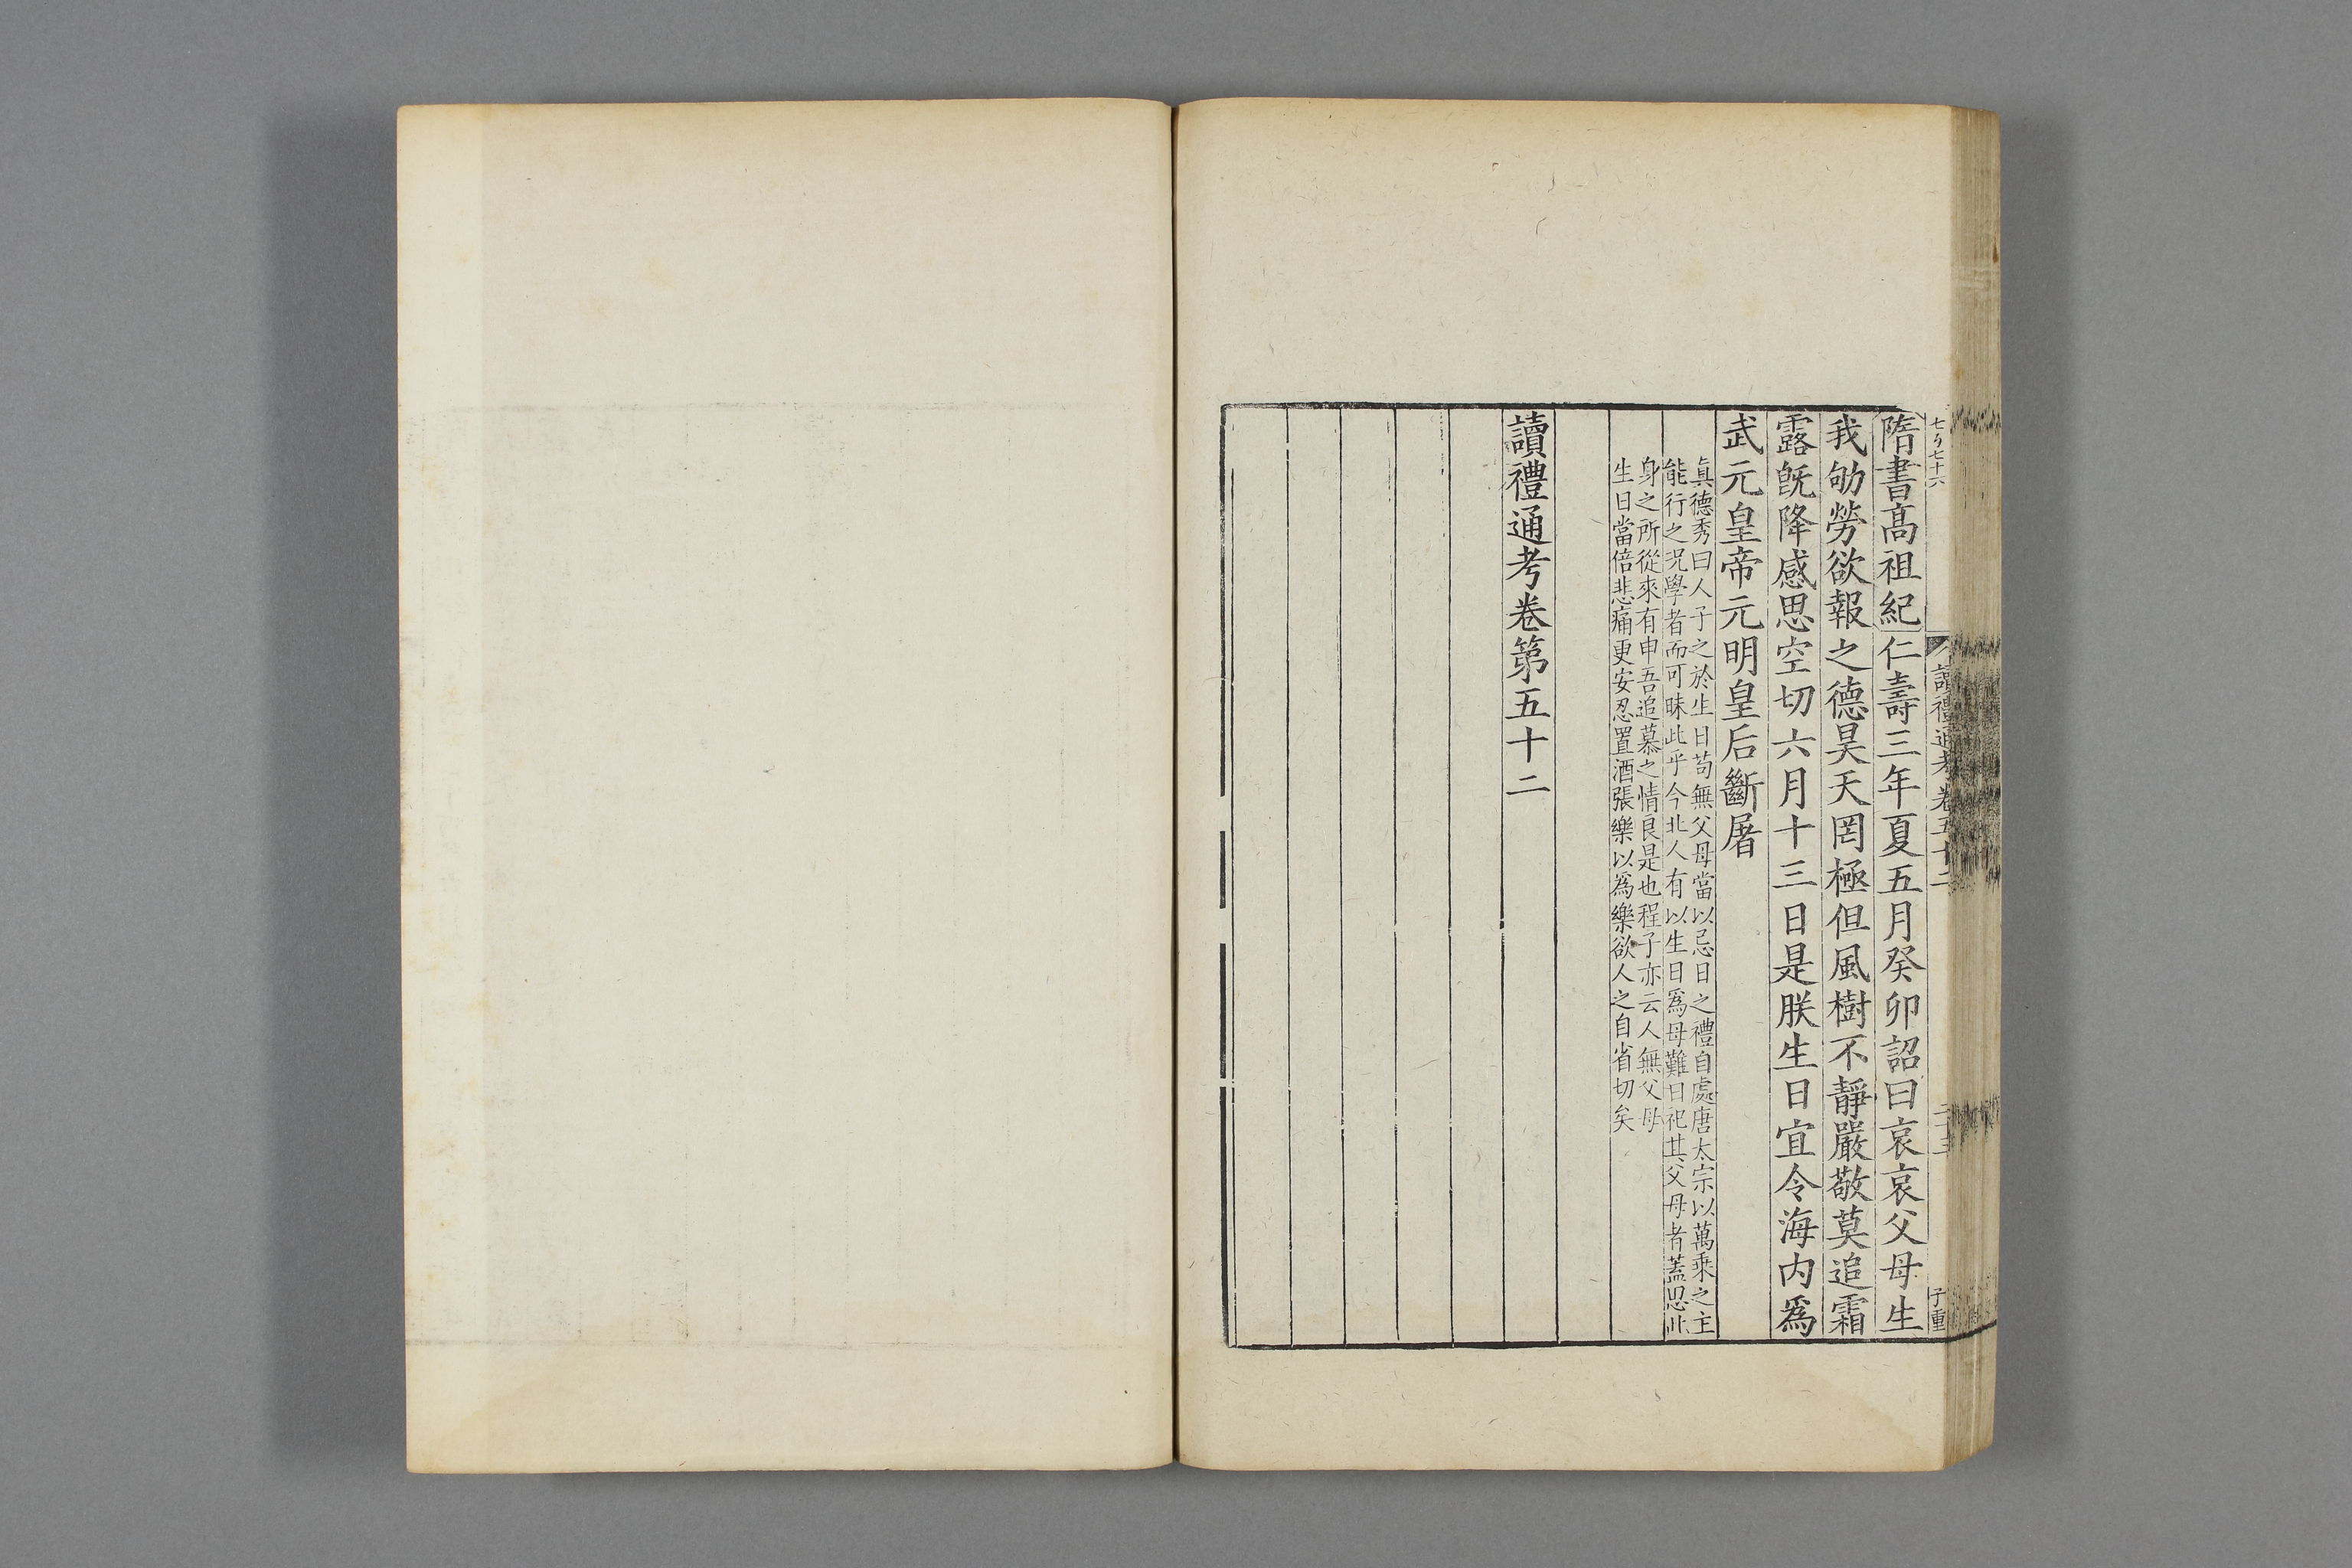 隋書髙祖紀仁壽三年夏五月癸卯詔曰哀哀父母生
我劬勞欲報之德昊天罔極但風樹不靜嚴敬莫追霜
露旣降感思空切六月十三日是朕生日宜令海内爲
武元皇帝元明皇后斷屠
眞德秀曰人子之於生日苟無父母當以忌日之禮自處唐太宗以萬乘之主
能行之况學者而可昧此乎今北人有以生日爲母難日祀其父母者蓋思此
身之所從來有申吾追慕之情良是也程子亦云人無父母
生日當倍悲痛更安忍置酒張樂以爲樂欲人之自省切矣
讀禮通考卷第五十二
讀禮通考卷五十二
二十三
子重